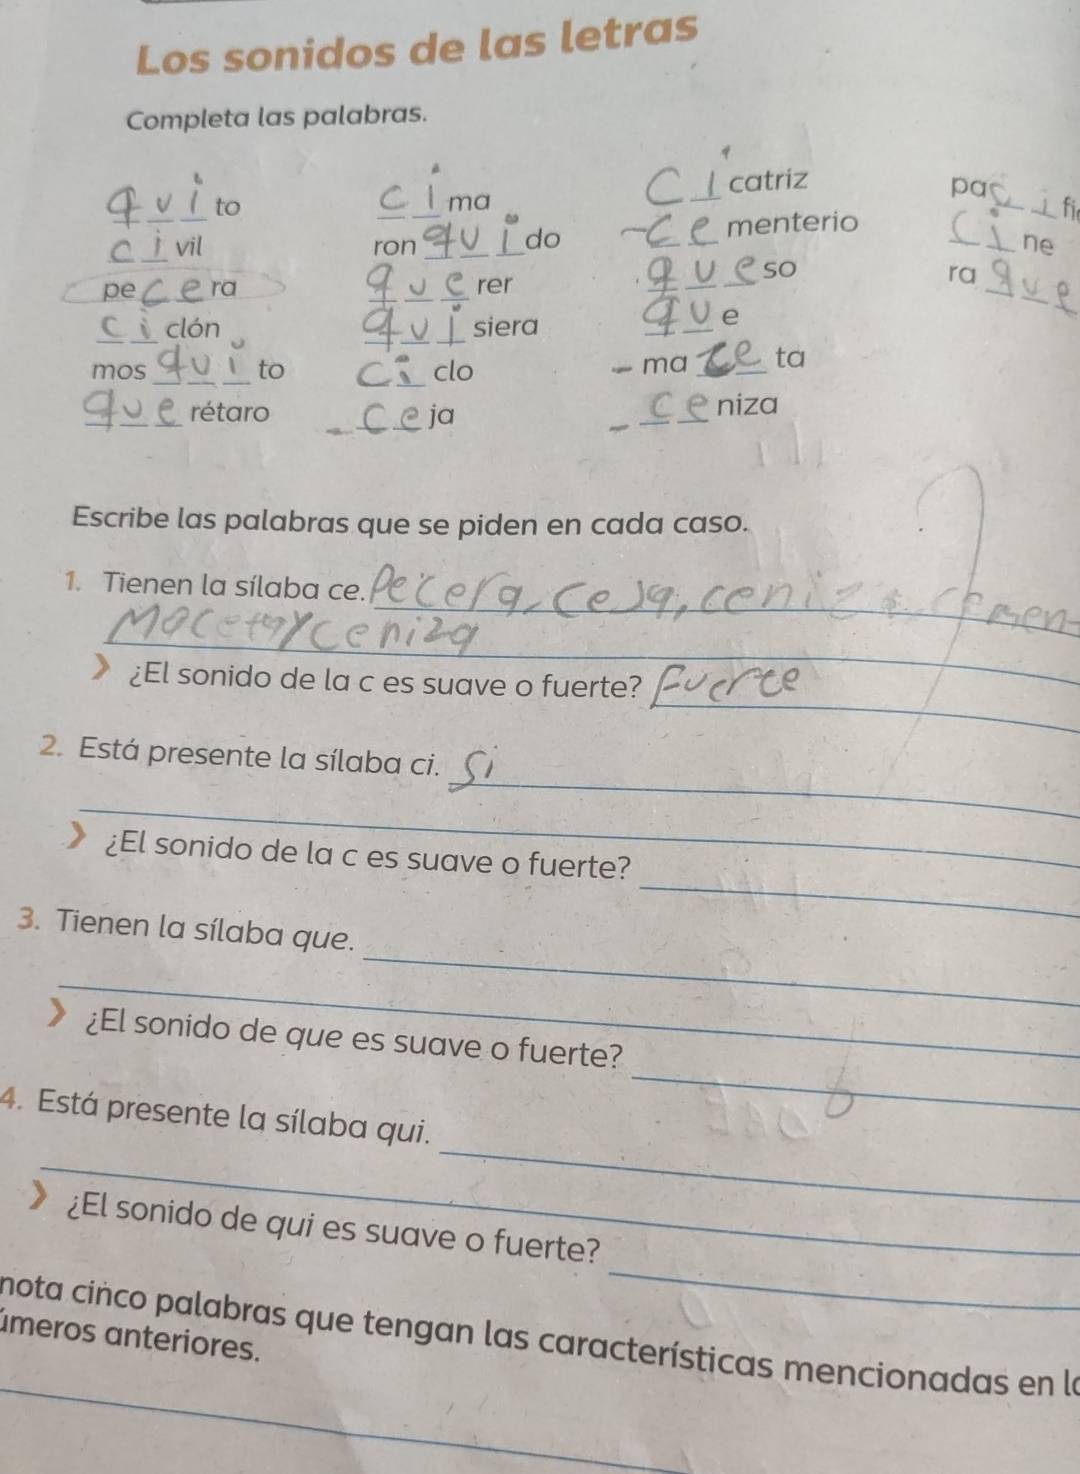 Los sonidos de las letras
Completa las palabras.
quito cima cicatriz pacífi
civil ronquido cementerio cine
pecera querer queso raque
ciclón quisiera que
mosquito ciclo maceta
querétaro ceja ceniza
Escribe las palabras que se piden en cada caso.
1. Tienen la sílaba ce. Pecera, ceja, ceniza, cemen-
Maceta y ceniza
¿El sonido de la c es suave o fuerte? Fuerte
2. Está presente la sílaba ci. Si
¿El sonido de la c es suave o fuerte?
3. Tienen la sílaba que.
¿El sonido de que es suave o fuerte?
4. Está presente la sílaba qui.
¿El sonido de qui es suave o fuerte?
nota cinco palabras que tengan las características mencionadas en lo
úmeros anteriores.